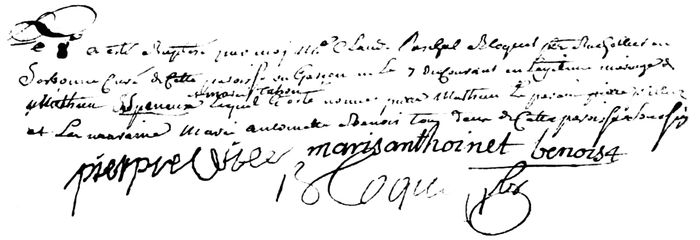 Le 8 a esté Baptisé par moj Mre Claude Paschal Bloquet ptre Bachellier en
Sorbonne Curé de Cette paroisse un Garçon né Le 7 du Courant en Legitime mariage de
Mathieu et marie Lequel a esté nommé pierre Mathieu Le parain pierre
et La maraine Marie antoinette Benois tous deux de Cette paroisse
marisanthoinet benoist
Bloquet